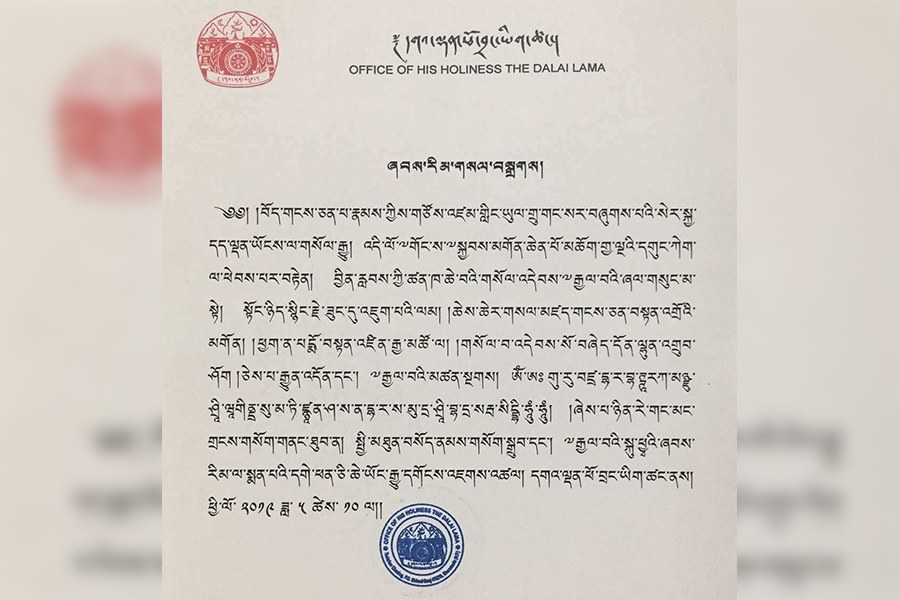 ༄ དགའ་ལྡན་ཕོ་བྲང་ཡིག་ཚང་།
OFFICE OF HIS HOLINESS THE DALAI LAMA
ཞབས་རིམ་གསལ་བསྒྲགས།
༄༅། །བོད་གངས་ཅན་པ་རྣམས་ཀྱིས་གཙོས་འཛམ་གླིང་ཡུལ་གྲུ་གང་སར་བཞུགས་པའི་སེར་སྐྱ་
དད་ལྡན་ཡོངས་ལ་གསོལ་རྒྱུ། འདི་ལོ་༧གོང་ས་༧སྐྱབས་མགོན་ཆེན་པོ་མཆོག་གྱ་ལྔའི་དགུང་ཀེག་
ལ་ཕེབས་པར་བརྟེན། བྱིན་རླབས་ཀྱི་ཚན་ཁ་ཆེ་བའི་གསོལ་འདེབས་༧རྒྱལ་བའི་ཞལ་གསུང་མ་
སྟེ། སྟོང་ཉིད་སྙིང་རྗེ་ཟུང་དུ་འཇུག་པའི་ལམ། །ཆེས་ཆེར་གསལ་མཛད་གངས་ཅན་བསྟན་འགྲོའི་
མགོན། །ཕྱག་ན་པདྨོ་བསྟན་འཛིན་རྒྱ་མཚོ་ལ། །གསོལ་བ་འདེབས་སོ་བཞེད་དོན་ལྷུན་འགྲུབ་
ཤོག །ཅེས་པ་རྒྱུན་འདོན་དང་། ༧རྒྱལ་བའི་མཚན་སྔགས། ཨོཾ་ཨཱཿ་གུ་རུ་བཛྲ་དྷ་ར་བྷ་ཊྚཱ་རཀ་མཉྫུ་
ཤྲཱི་ཝཱགིནྡྲ་སུ་མ་ཏི་ཛྙཱན་ཤ་ས་ན་དྷ་ར་ས་མུ་དྲ་ཤྲཱི་བྷ་དྲ་སརྦ་སིདྡྷི་ཧཱུྃ་ཧཱུྃ། །ཞེས་པ་ཉིན་རེ་གང་མང་
གྲངས་གསོག་གནང་ཐུབ་ན། སྤྱི་མཐུན་བསོད་ནམས་གསོག་སྒྲུབ་དང་། ༧རྒྱལ་བའི་སྐུ་ཕྱྭའི་ཞབས་
རིམ་ལ་སྨན་པའི་དགེ་ཕན་ཅི་ཆེ་ཡོང་རྒྱུ་དགོངས་འཇགས་འཚལ། དགའ་ལྡན་ཕོ་བྲང་ཡིག་ཚང་ནས།
ཕྱི་ལོ་ ༢༠༡༩ ཟླ་ ༥ ཚེས་ ༡༠ ལ།།
OFFICE OF HIS HOLINESS THE DALAI LAMA